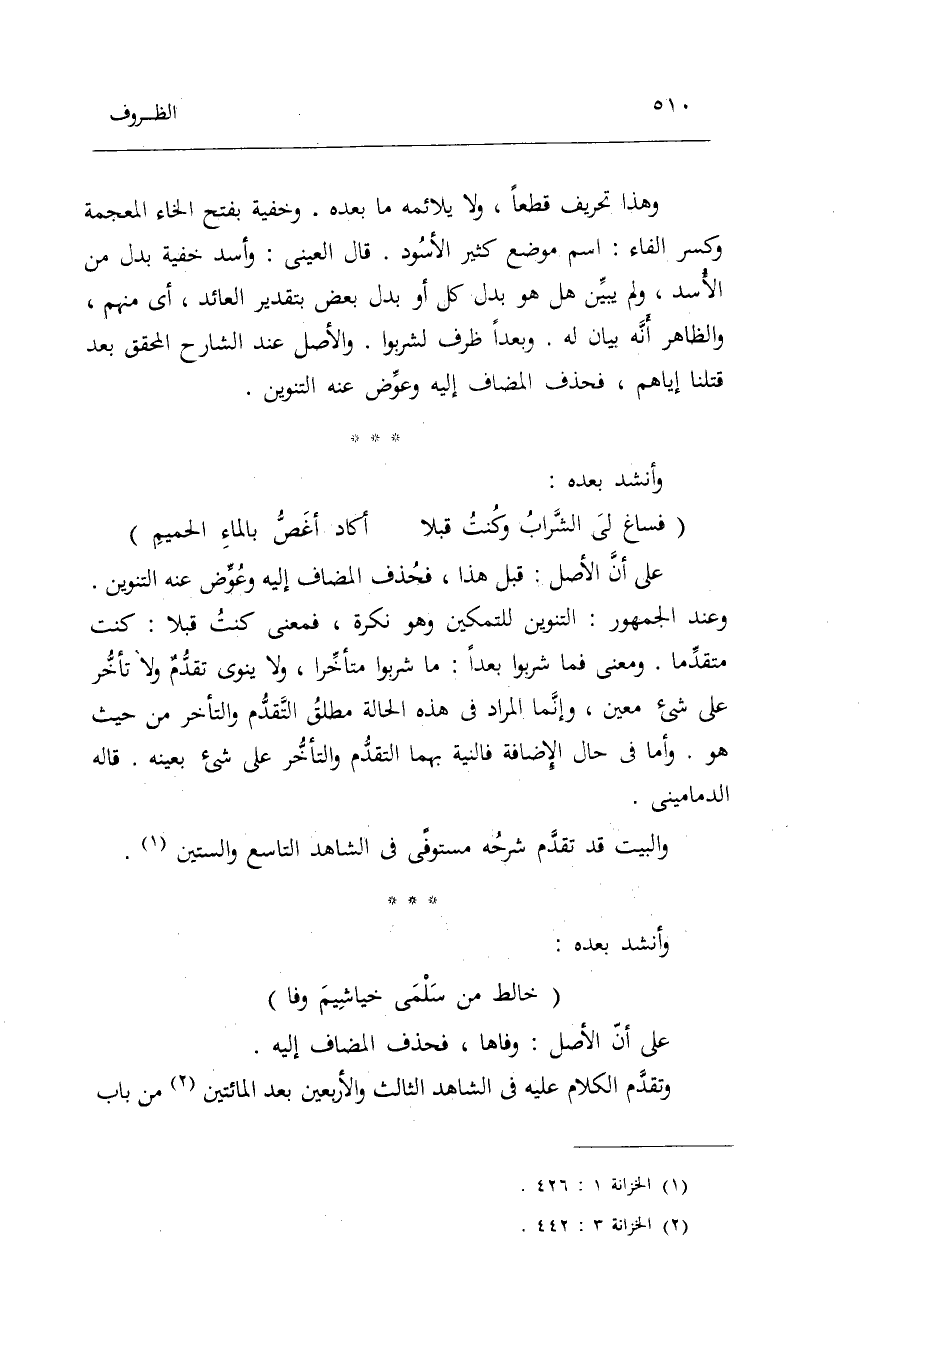 ٥١٠ الظـروف
وهذا تحريف قطعاً ، ولا يلائمه ما بعده . وخفية بفتح الخاء المعجمة
وكسر الفاء : اسم موضع كثير الأسُود . قال العينى : وأسد خفية بدل من
الأُسد ، ولم يبيِّن هل هو بدل كل أو بدل بعض بتقدير العائد ، أى منهم ،
والظاهر أنَّه بيان له . وبعداً ظرف لشربوا . والأصل عند الشارح المحقق بعد
قتلنا إياهم ، فحذف المضاف إليه وعوِّض عنه التنوين .
* * *
وأنشد بعده :
( فساغ لىَ الشَّرابُ وكُنتُ قبلا أكاد أغَصُّ بالماءِ الحميمِ )
على أنَّ الأصل : قبل هذا ، فحُذف المضاف إليه وعُوِّض عنه التنوين .
وعند الجمهور : التنوين للتمكين وهو نكرة ، فمعنى كنتُ قبلا : كنت
متقدِّما . ومعنى فما شربوا بعداً : ما شربوا متأخِّرا ، ولا ينوى تقدُّمٌ ولا تأخُّر
على شىء معين ، وإنَّما المراد فى هذه الحالة مطلقُ التَّقدُّم والتأخر من حيث
هو . وأما فى حال الإِضافة فالنية بهما التقدُّم والتأخُّر على شىء بعينه . قاله
الدمامينى .
والبيت قد تقدَّم شرحُه مستوفًى فى الشاهد التاسع والستين (١) .
* * *
وأنشد بعده :
( خالط من سَلْمَى خياشِيمَ وفا )
على أنّ الأصل : وفاها ، فحذف المضاف إليه .
وتقدَّم الكلام عليه فى الشاهد الثالث والأربعين بعد المائتين (٢) من باب
(١) الخزانة ١ : ٤٢٦ .
(٢) الخزانة ٣ : ٤٤٢ .